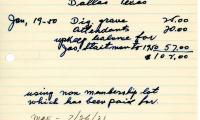 Dallas Texas
Jan, 19-50 Dig. grave 25.00
attendants 20.00
upkeep balance for
Jas, Startments to 1950 57.00
$107.00
using non membership lot
which has been paid for.